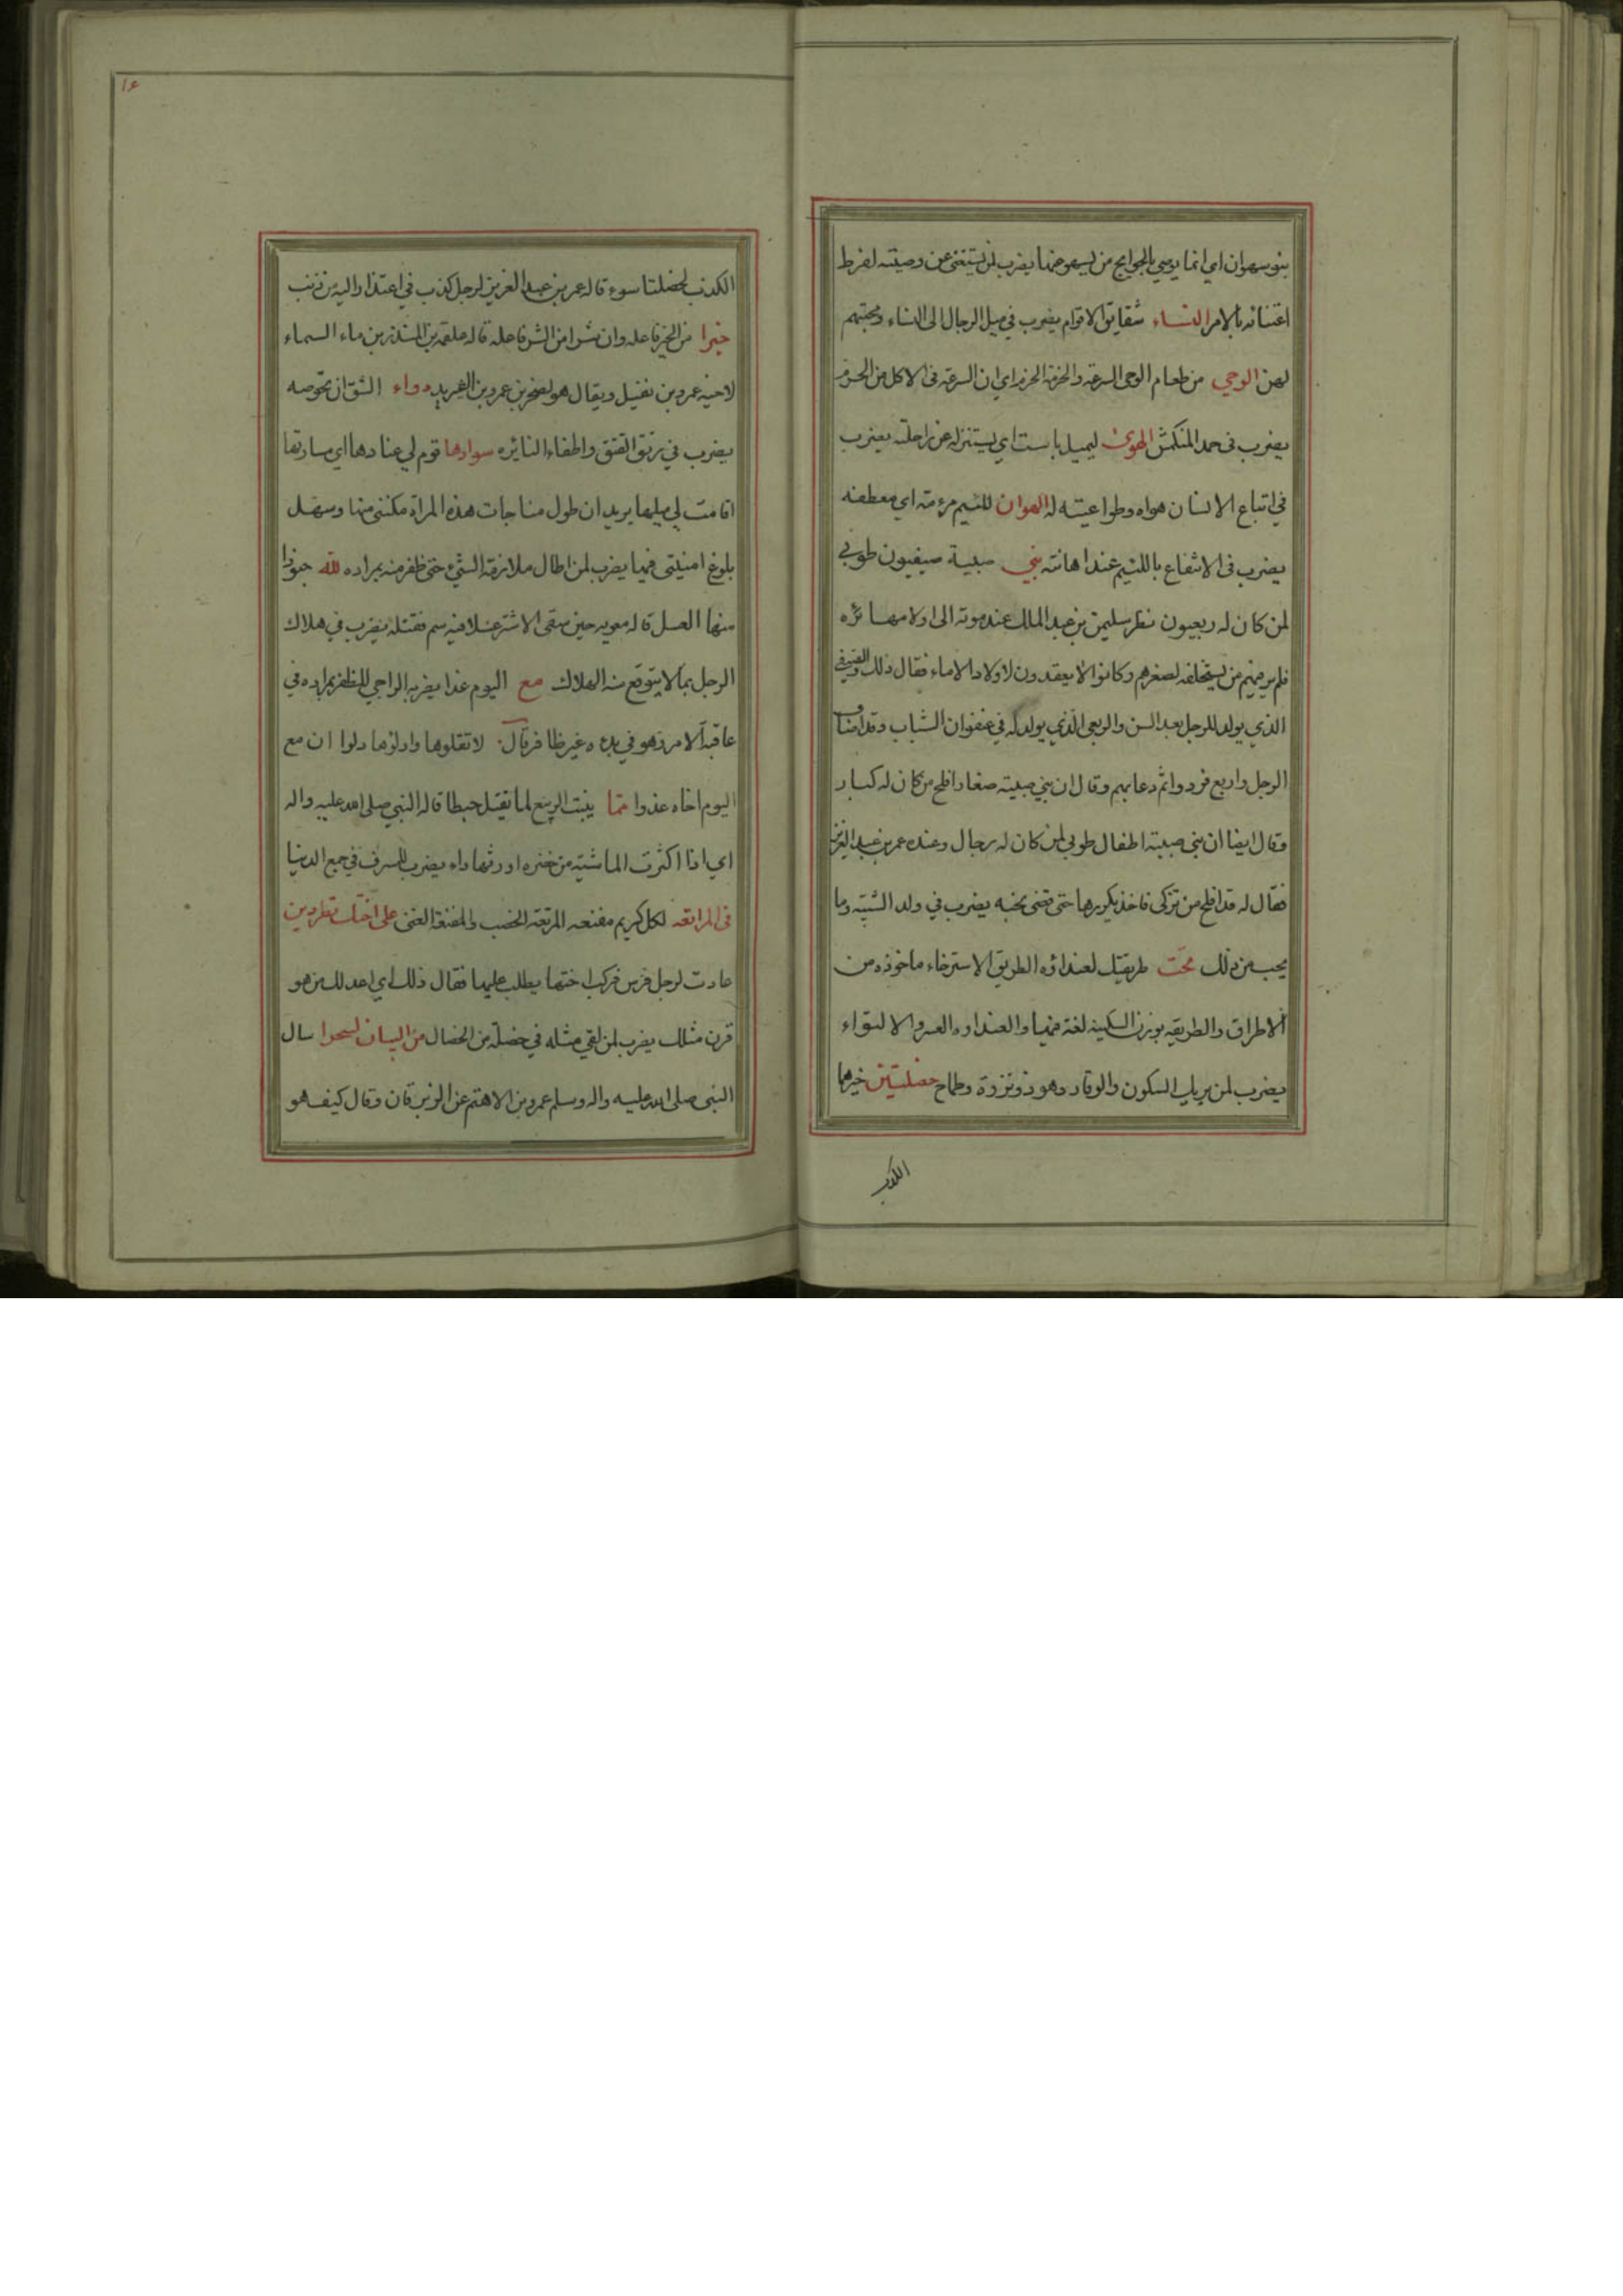 بنو سهوان اي انما يوصي بالحوايج من يسهو عنها يضرب لمن يستغني عن وصيته لفرط
اعتنائه بالامر النساء شقايق الاقوام يضرب في ميل الرجال الى النساء ومحبتهم
لهن الوحي من طعام الوحى السرعة والخزمة اي ان السرعة فى الاكل من الحزم
يضرب فى حمد المنكمش الهوى ليميل باست اي يستنزله عن راحلته يضرب
في اتباع الانسان هواه وطواعيته له الهوان للئيم مرءمة اي معطفه
يضرب فى الانتفاع باللئيم عند اهانته بني صبية صيفيون طوبى
لمن كان له ربعيون نظر سليمن بن عبد الملك عند موته الى اولاده
فلم ير فيهم من يستخلفه لصغرهم وكانوا لا يعقدون لاولاد الاماء فقال ذلك والصيفي
الذي يولد للرجل بعد السن والربعى الذي يولد له في عنفوان الشباب وقد اصاف
الرجل واربع فردوا ثم دعا بهم وقال ان بني صبية صغار افلح من كان له كبار
وقال ايضا ان بني صبية اطفال طوبى لمن كان له رجال وعنده عمر بن عبد العزيز
فقال له قد افلح من تزكى فاخذ يكررها حتى قضى نحبه يضرب في ولد الشيبة وما
يجب من ذلك تحت طريقتك لعنداوه الطريق الاسترخاء ماخوذه من
الاطراق والطريقه بوزن السكينة لغة فيها والعنداوه العسر والالتواء
يضرب لمن يريك السكون والوقار وهو ذو نزوة وطماح خصلتين خيرهما
الكذب
١٤
الكذب لخصلتا سوء قاله عمر بن عبد العزيز لرجل كذب في اعتذاره اليه من ذنب
خيرا من الخير فاعله وان شرا من الشر فاعله قاله علقمه بن المنذر بن ماء السماء
لاخيه عمرو بن نفيل ويقال هو لصخر بن عمرو بن الشريد دواء الشق ان تحوصه
يضرب في رتق الفتق واطفاء النائره سوادها قوم لي عنادها اي مسارتها
اقامت لي ميلها يريد ان طول مناجات هذه المراة مكننى منها وسهل
بلوغ امنيتى فيها يضرب لمن اطال ملازمة الشيء حتى ظفر منه بمراده لله جنودا
منها العسل قاله معويه حين سقى الاشتر عسلا فيه سم فقتله يضرب في هلاك
الرجل بما لا يتوقع منه الهلاك مع اليوم غدا يضربه الراجي للظفر بمراده في
عاقبة الامر وهو في بدءه غير ظافر قال لا تقلوها وادلوها دلوا ان مع
اليوم اخاه غدوا مما ينبت الربيع لما يقتل حبطا قاله النبي صلى الله عليه واله
اي اذا اكثرت الماشية من خضره اورثها داء يضرب للسرف في جمع الدنيا
فى المرتعه لكل كريم مقنعه المرتعة الخصب والمقنعة الغنى على اختك تطردين
عادت لرجل فرس فركب اختها يطلب عليها فقال ذلك اي اعد لك من هو
قرن مثلك يضرب لمن لقي مثله في خصلة من الخصال من البيان لسحرا سال
النبى صلى الله عليه واله وسلم عمرو بن الاهتم عن الزبرقان وقال كيف هو